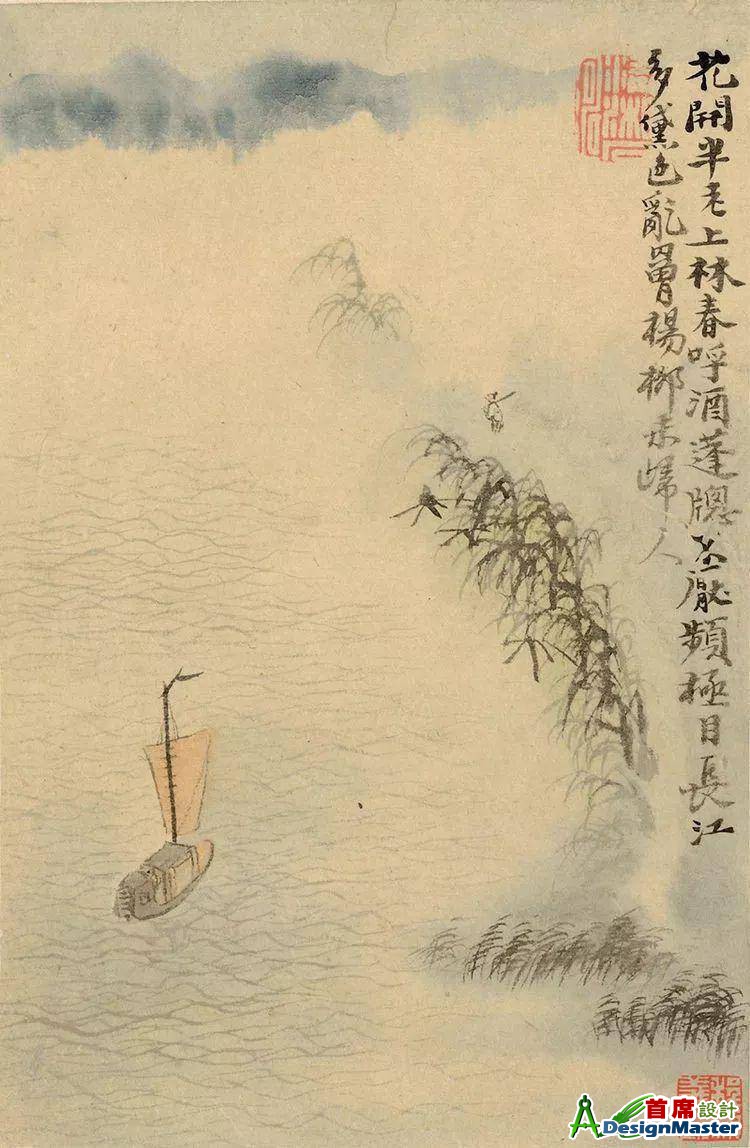 花開半老上林春呼酒蓬牕不厭頻極目長江
多黛色亂罥楊柳未歸人
首席設計
ADesignMaster